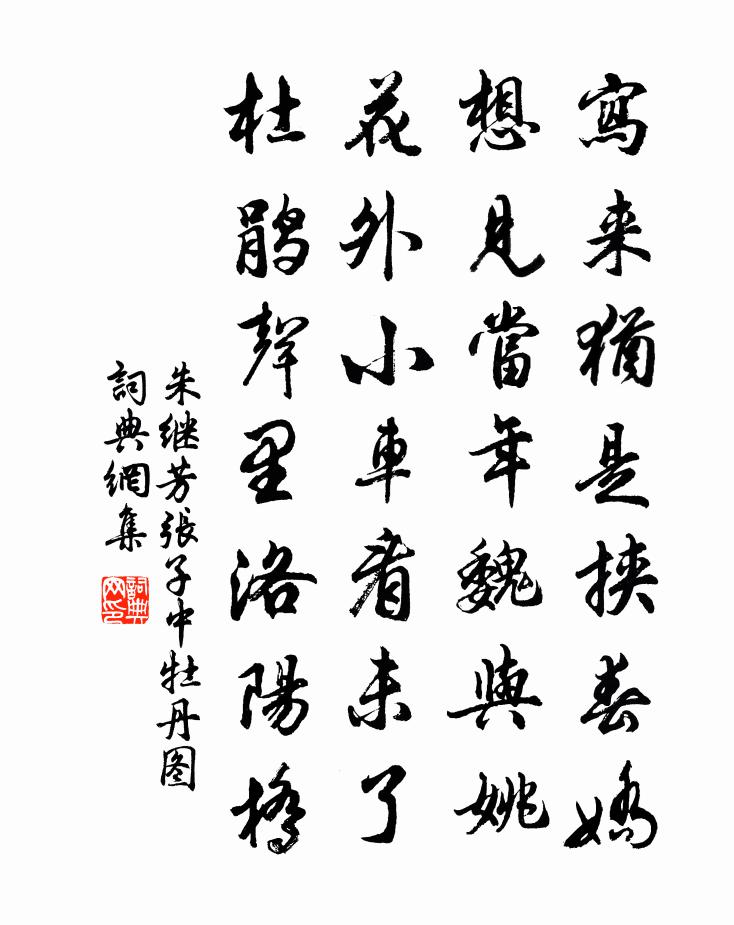 寫来猶是挟春嬌
想見當年魏與姚
花外小車看未了
杜鵑聲里洛陽橋
朱继芳張子中牡丹图
詞典網集
詞典网印